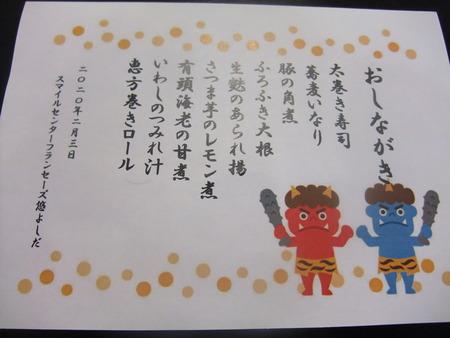 おしながき
太巻き寿司
蕎麦いなり
豚の角煮
ふろふき大根
生麩のあられ揚
さつま芋のレモン煮
有頭海老の甘煮
いわしのつみれ汁
恵方巻きロール
二〇二〇年二月三日
スマイルセンターフランセーズ悠よしだ